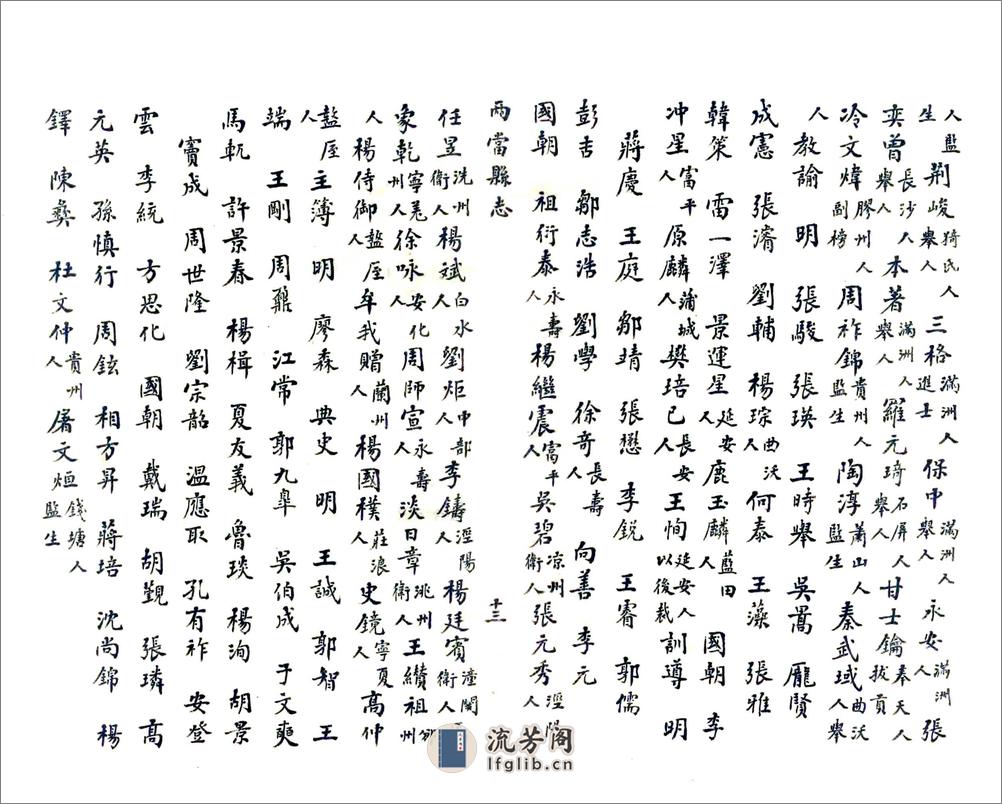 人監生荆峻猗氏人舉人 三格滿洲人進士 保中滿洲人舉人 永安滿洲人 張
奕曾長沙人舉人 本著滿洲人舉人 羅元琦石屏人舉人 甘士鑰奉天人拔貢
冷文煒膠州人副榜 周祚錦貴州人監生 陶淳蕭山人監生 秦武域曲沃人舉
人教諭 明 張駿 張瑛 王時舉 吳暠 龎賢
成憲 張濬 劉輔 楊琮曲沃 何泰 王藻 張雅
韓策 雷一澤 景運星延安人 鹿玉麟藍田人 國朝 李
冲星富平人 原麟蒲城人 樊培已長安人 王恂延安人以後裁 訓導 明
蔣慶 王庭 鄒靖 張懋 李銳 王睿 郭儒
彭吉 鄒志浩 劉學 徐奇長壽人 向善 李元
國朝 祖衍泰永壽人 楊繼震富平人 吳碧凉州衛人 張元秀涇陽人
兩當縣志 十三
任昱洮州衛人 楊斌白水人 劉炬中部人 李鑄涇陽人 楊廷賓潼關衛人
象乾寧羌州人 徐咏安化人 周師宣永壽人 淡日章洮州衛人 王纘祖邠州
人楊侍御盩厔人 牟我贈蘭州人 楊國樸莊浪人 史鏡寧夏人 高仲
盩厔人 主簿 明 廖森 典史 明 王誠 郭智 王
端 王剛 周鼐 江常 郭九臯 吳伯成 于文奭
馬軏 許景春 楊楫 夏友義 魯琰 楊洵 胡景
竇成 周世隆 劉宗韶 溫應取 孔有祚 安登
雲 李統 方思化 國朝 戴瑞 胡覲 張璘 高
元英 孫慎行 周鉉 相方昇 蔣培 沈尚錦 楊
鐸 陳彝 杜文仲貴州人 屠文烜錢塘人監生
流芳阁
lfglib.cn